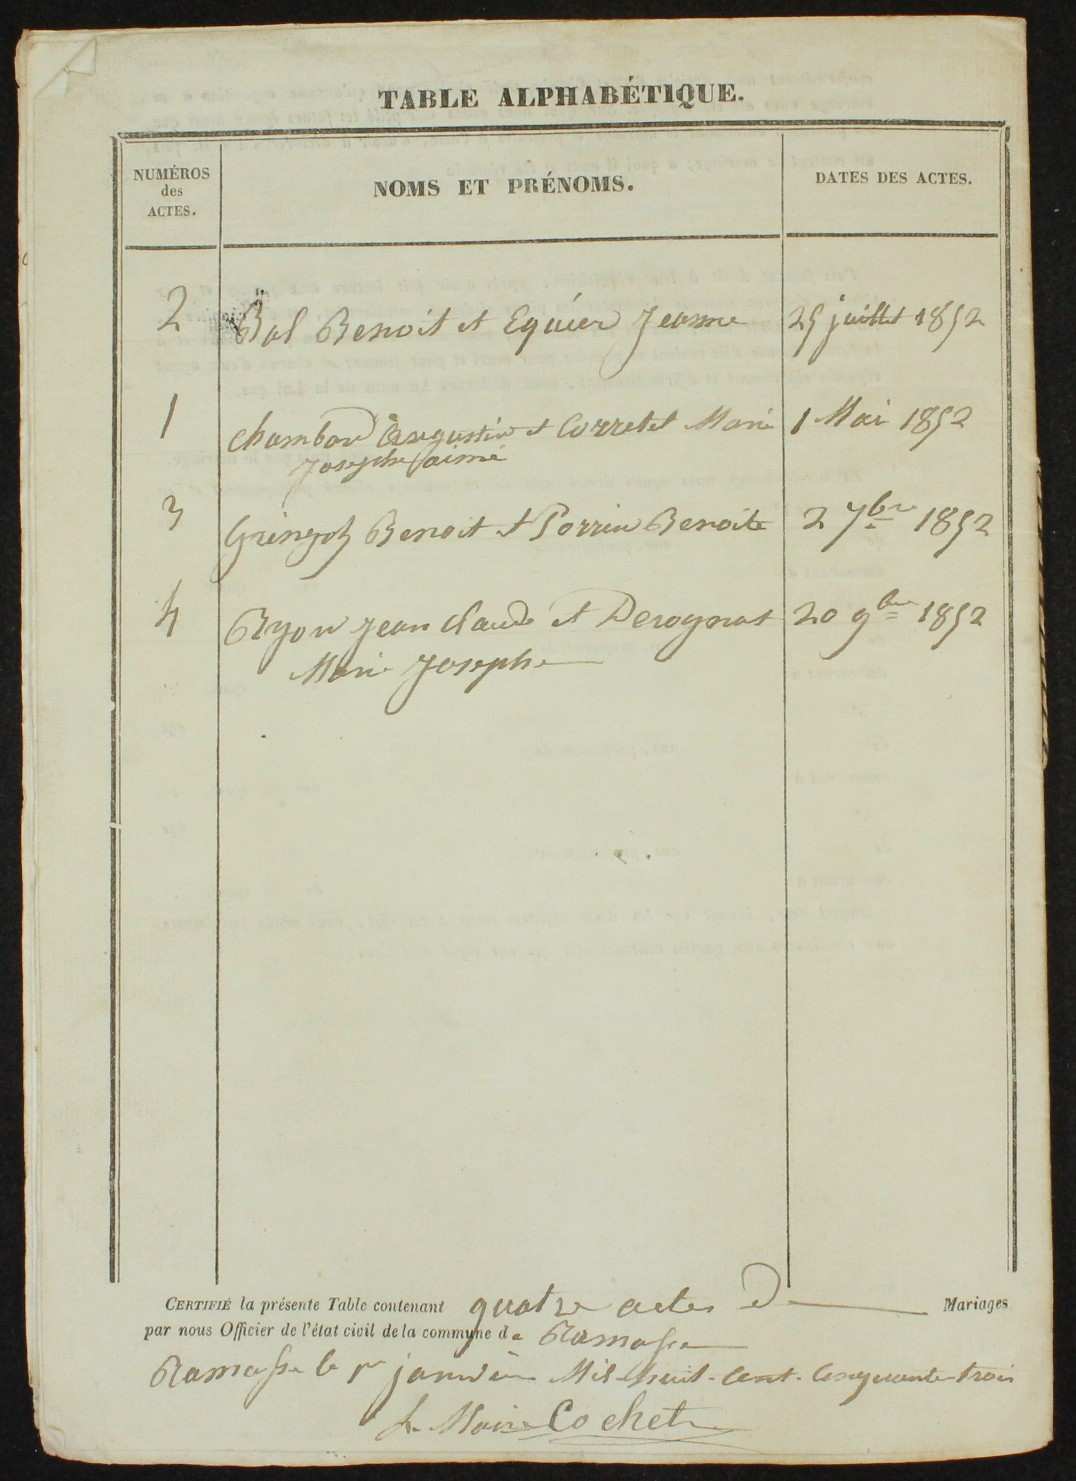 TABLE ALPHABÉTIQUE.
NUMÉROS
des
ACTES.
NOMS ET PRÉNOMS.
DATES DES ACTES.
2 Bal Benoit et Equier Jeanne 25 juillet 1852
1 Chambard Augustin et Corretel Marie 1 Mai 1852
Josephe
3 Gringoz Benoit et Perrin Benoite 2 7bre 1852
4 Ryon Jean Claude et Derognat 20 9bre 1852
Marie Josephe
CERTIFIÉ la présente Table contenant quatre actes de Mariages
par nous Officier de l'état civil de la commune de Ramasse
Ramasse le 1er janvier Mil-huit-cent-cinquante-trois
Le Maire Cochet